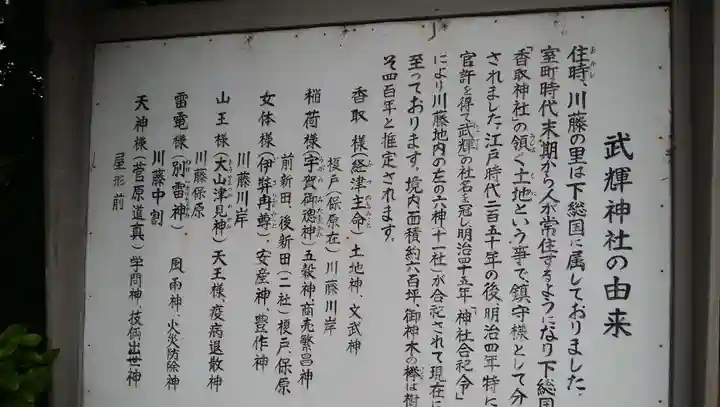 武輝神社の由来
往時、川藤の里は下総国に属しておりました。
室町時代末期から人が常住するようになり下総国
「香取神社」の領く土地という事で、鎮守様として分
されました。江戸時代二百五十年の後、明治四年特に
官許を得て武輝の社名を冠し明治四十五年「神社合祀令」
により川藤地内の左の六神(十一社)が合祀されて現在に
至っております。境内面積約六百坪、御神木の欅は樹
そ四百年と推定されます。
香取様(経津主命)土地神、文武神
榎戸(保原在)川藤川岸
稲荷様(宇賀御魂神)五穀神、商売繁昌神
前新田、後新田(二社)榎戸、保原
女体様(伊弉冉尊)、安産神、豊作神
川藤川岸
山王様(大山津見神)天王様、疫病退散神
川藤保原
雷電様(別雷神)風雨神、火災防除神
川藤中割
天神様(菅原道真)学問神、技倆出世神
屋形前